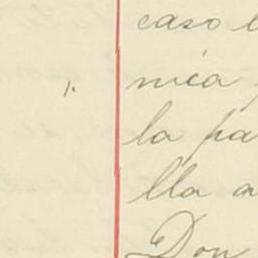 caso
nica
la pa
lla a
Don